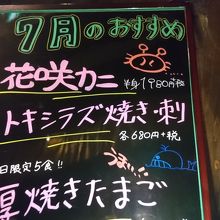 7月のおすすめ
花咲カニ 半身1980円+税
トキシラズ焼き・刺
各680円+税
日限定5食!!
厚焼きたまご